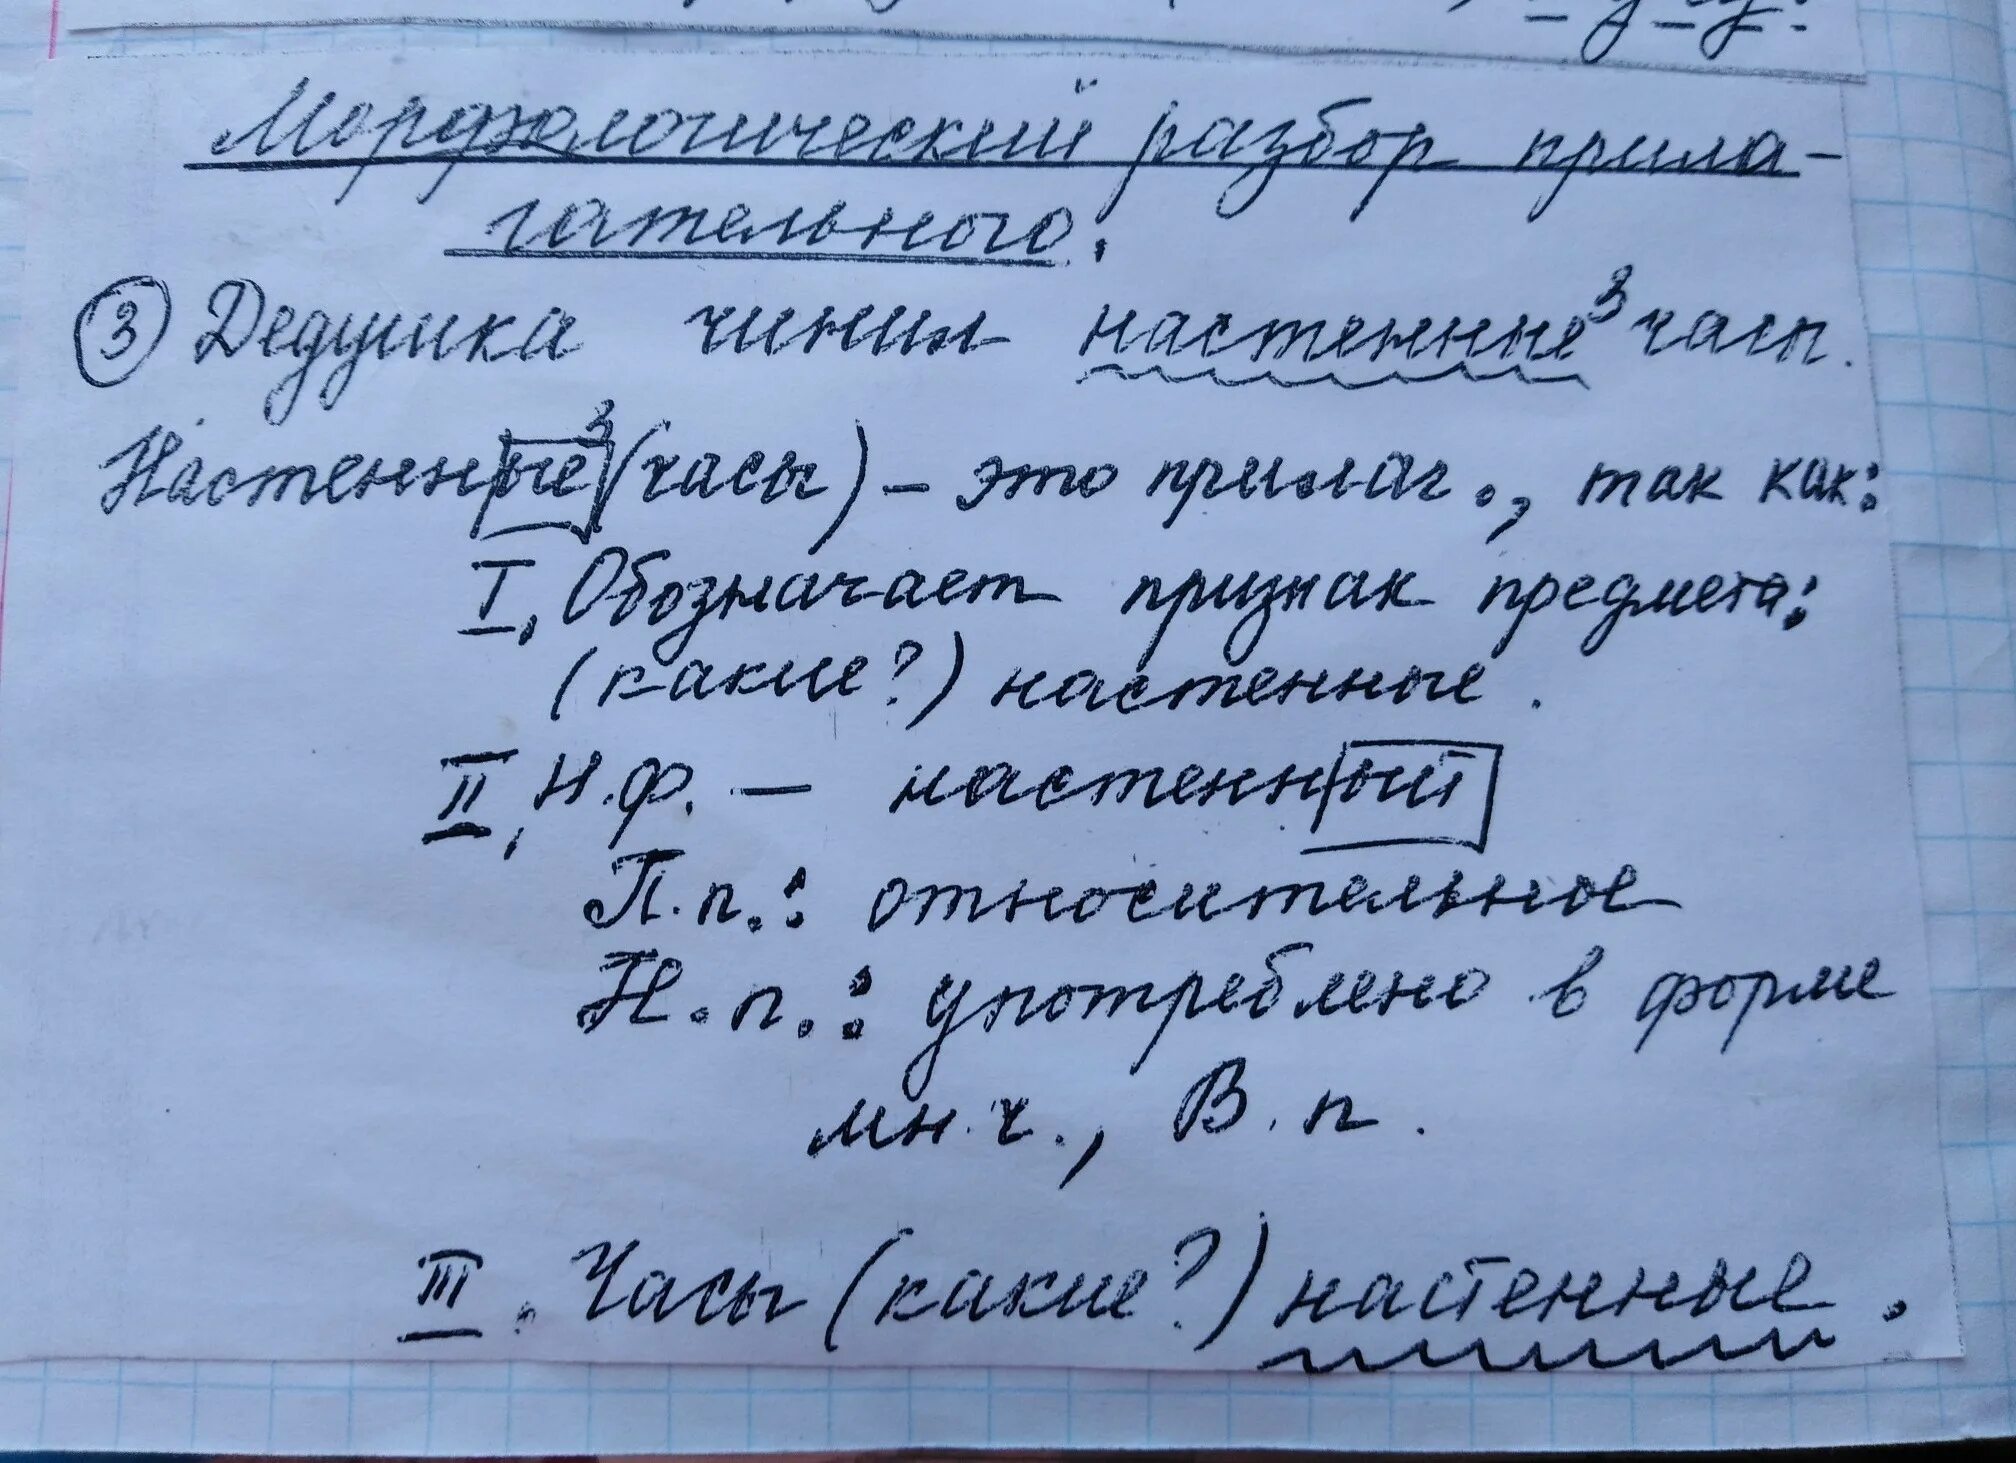 Морфологический разбор прила-
гательного.
③ Дедушка чинил настенные³ часы.
Настенные³ (часы) – это прилаг., так как:
I. Обозначает признак предмета:
(какие?) настенные.
II. Н.ф. – настенный
П.п.: относительное
Н.п.: употреблено в форме
мн.ч., В.п.
III. Часы (какие?) настенные.